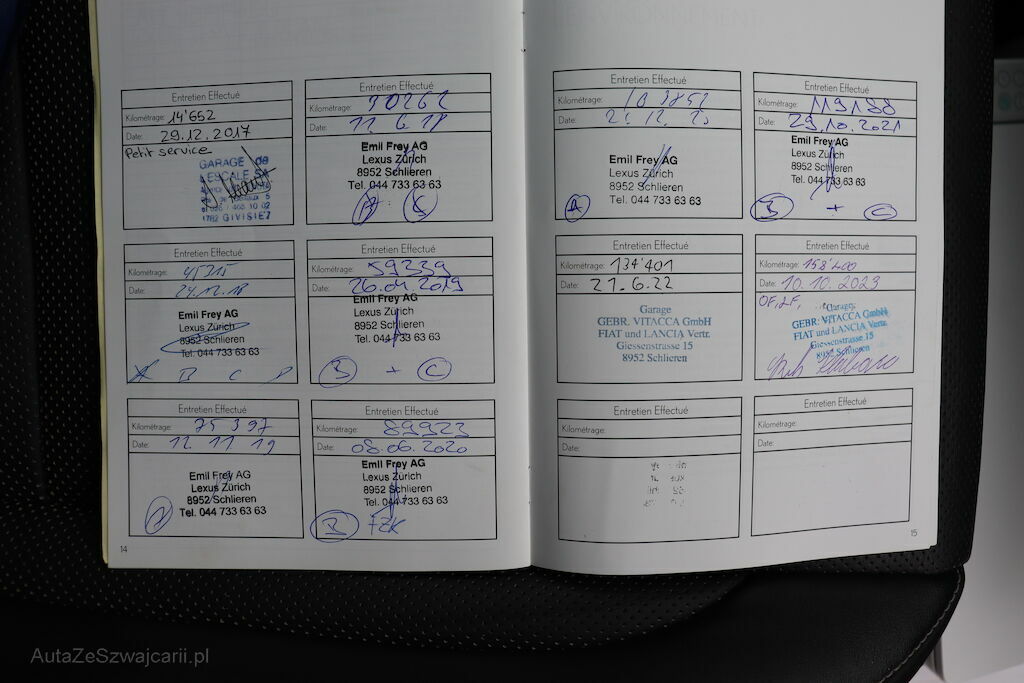 Entretien Effectué
Kilométrage: 14'652
Date: 29.12.2017
Petit service
GARAGE de
L'ESCALE SA
1762 GIVISIEZ
Entretien Effectué
Kilométrage: 30262
Date: 11 6 18
Emil Frey AG
Lexus Zürich
8952 Schlieren
Tel. 044 733 63 63
Entretien Effectué
Kilométrage: 45315
Date: 24.12.18
Emil Frey AG
Lexus Zürich
8952 Schlieren
Tel. 044 733 63 63
A B C D
Entretien Effectué
Kilométrage: 59339
Date: 26.04.2019
Emil Frey AG
Lexus Zürich
8952 Schlieren
Tel. 044 733 63 63
B + C
Entretien Effectué
Kilométrage: 75397
Date: 12 11 19
Emil Frey AG
Lexus Zürich
8952 Schlieren
Tel. 044 733 63 63
Entretien Effectué
Kilométrage: 89923
Date: 08.06.2020
Emil Frey AG
Lexus Zürich
8952 Schlieren
Tel. 044 733 63 63
B FZK
14
Entretien Effectué
Kilométrage: 103852
Date: 21.12.20
Emil Frey AG
Lexus Zürich
8952 Schlieren
Tel. 044 733 63 63
A
Entretien Effectué
Kilométrage: 119188
Date: 29.10.2021
Emil Frey AG
Lexus Zürich
8952 Schlieren
Tel. 044 733 63 63
B + C
Entretien Effectué
Kilométrage: 134'401
Date: 21.6.22
Garage
GEBR. VITACCA GmbH
FIAT und LANCIA Vertr.
Giessenstrasse 15
8952 Schlieren
Entretien Effectué
Kilométrage: 158'400
Date: 10.10.2023
OF, LF,
Garage
GEBR. VITACCA GmbH
FIAT und LANCIA Vertr.
Giessenstrasse 15
8952 Schlieren
Entretien Effectué
Kilométrage:
Date:
Entretien Effectué
Kilométrage:
Date:
15
AutaZeSzwajcarii.pl